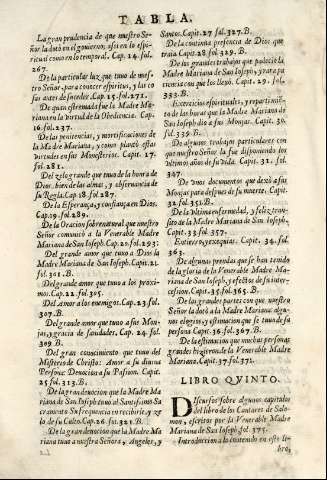 TABLA.
La gran prudencia de que nuestro Se-
ñor la dotó en el gouierno, assi en lo espi-
ritual como en lo temporal. Cap. 24. fol.
267.
De la particular luz que tuuo de nues-
tro Señor, para conocer espiritus, y las co
sas antes de suceder. Cap. 25. fol. 271.
De quan estremada fue la Madre Ma-
riana en la Virtud de la Obediencia. Cap.
16. fol. 237.
De las penitencias, y mortificaciones de
la Madre Mariana, y como plantó estas
virtudes en sus Monasterios. Capit. 17.
fol. 281.
Del zelo grande que tuuo de la honra de
Dios, bien de las almas, y obseruancia de
su Regla. Cap. 18. fol. 287
De la Esperança, y confiança en Dios.
Cap. 19. fol. 289.
De la Oracion sobrenatural que nuestro
Señor comunicó a la Venerable Madre
Mariana de San Ioseph. Cap. 20. fol. 293:
Del grande amor que tuuo a Dios la
Madre Mariana de San Ioseph. Capit. 21
fol. 301. B.
Del grande amor que tuuo a los proxi-
mos. Cap. 22. fol. 305.
Del amor a los enemigos. Cap. 23. fol.
307. B.
Del grande amor que tuuo a sus Mon-
jas, y gracia de sanidades. Cap. 24. fol.
309. B
Del gran conocimiento que tuuo del
Misterio de Christo: Amor a su diuina
Persona: Deuocion a su Passion. Capit.
25. fol. 313. B.
De la gran deuocion que la Madre Ma
riana de San Ioseph tuuo al Santissimo Sa
cramento. Su frequencia en recibirle, y ze
lo de su Culto. Cap. 26. fol. 321. B.
De la gran deuocion que la Madre Ma
riana tuuo a nuestra Señora, Angeles, y
Santos. Capit. 27. fol. 327. B.
De la continua presencia de Dios que
traia Capit. 28. fol. 329. B.
De los grandes trabajos que padecio la
Madre Mariana de San Ioseph, y rara pa
ciencia con que los lleuó. Capit. 29. fol.
333. B.
Exercicios espirituales, y repartimien-
to de las horas que la Madre Mariana de
San Ioseph dio a sus Monjas. Capit. 30.
fol. 339. B.
De algunos trabajos particulares con
que nuestro Señor la fue disponiendo los
vltimos años de su vida. Capit. 31. fol.
347.
De vnos documentos que dexó a sus
Monjas para despues de su muerte. Capit.
32. fol. 351. B.
De la vltima enfermedad, y feliz tran-
sito de la Madre Mariana de San Ioseph.
Capit. 33. fol. 357.
Entierro, y exequias. Capit. 34. fol.
363.
De algunas prendas que se han tenido
de la gloria de la Venerable Madre Ma-
riana de San Ioseph, y efectos de su inter-
cession. Capit. 35. fol. 365. B.
De las grandes partes con que nuestro
Señor la dotó a la Madre Mariana: algu-
nos elogios, y estimacion que se tuuo de su
persona Capit. 36. fol. 367. B.
De la estimacion que muchas personas
grandes hizieron de la Venerable Madre
Mariana. Capit. 37. fol. 371.
LIBRO QVINTO.
Discursos sobre algunos capitulos
del libro de los Cantares de Salo-
mon, escritos por la Venerable Madre
Mariana de San Ioseph. fol. 375.
Introduccion a lo contenido en este li-
bro,